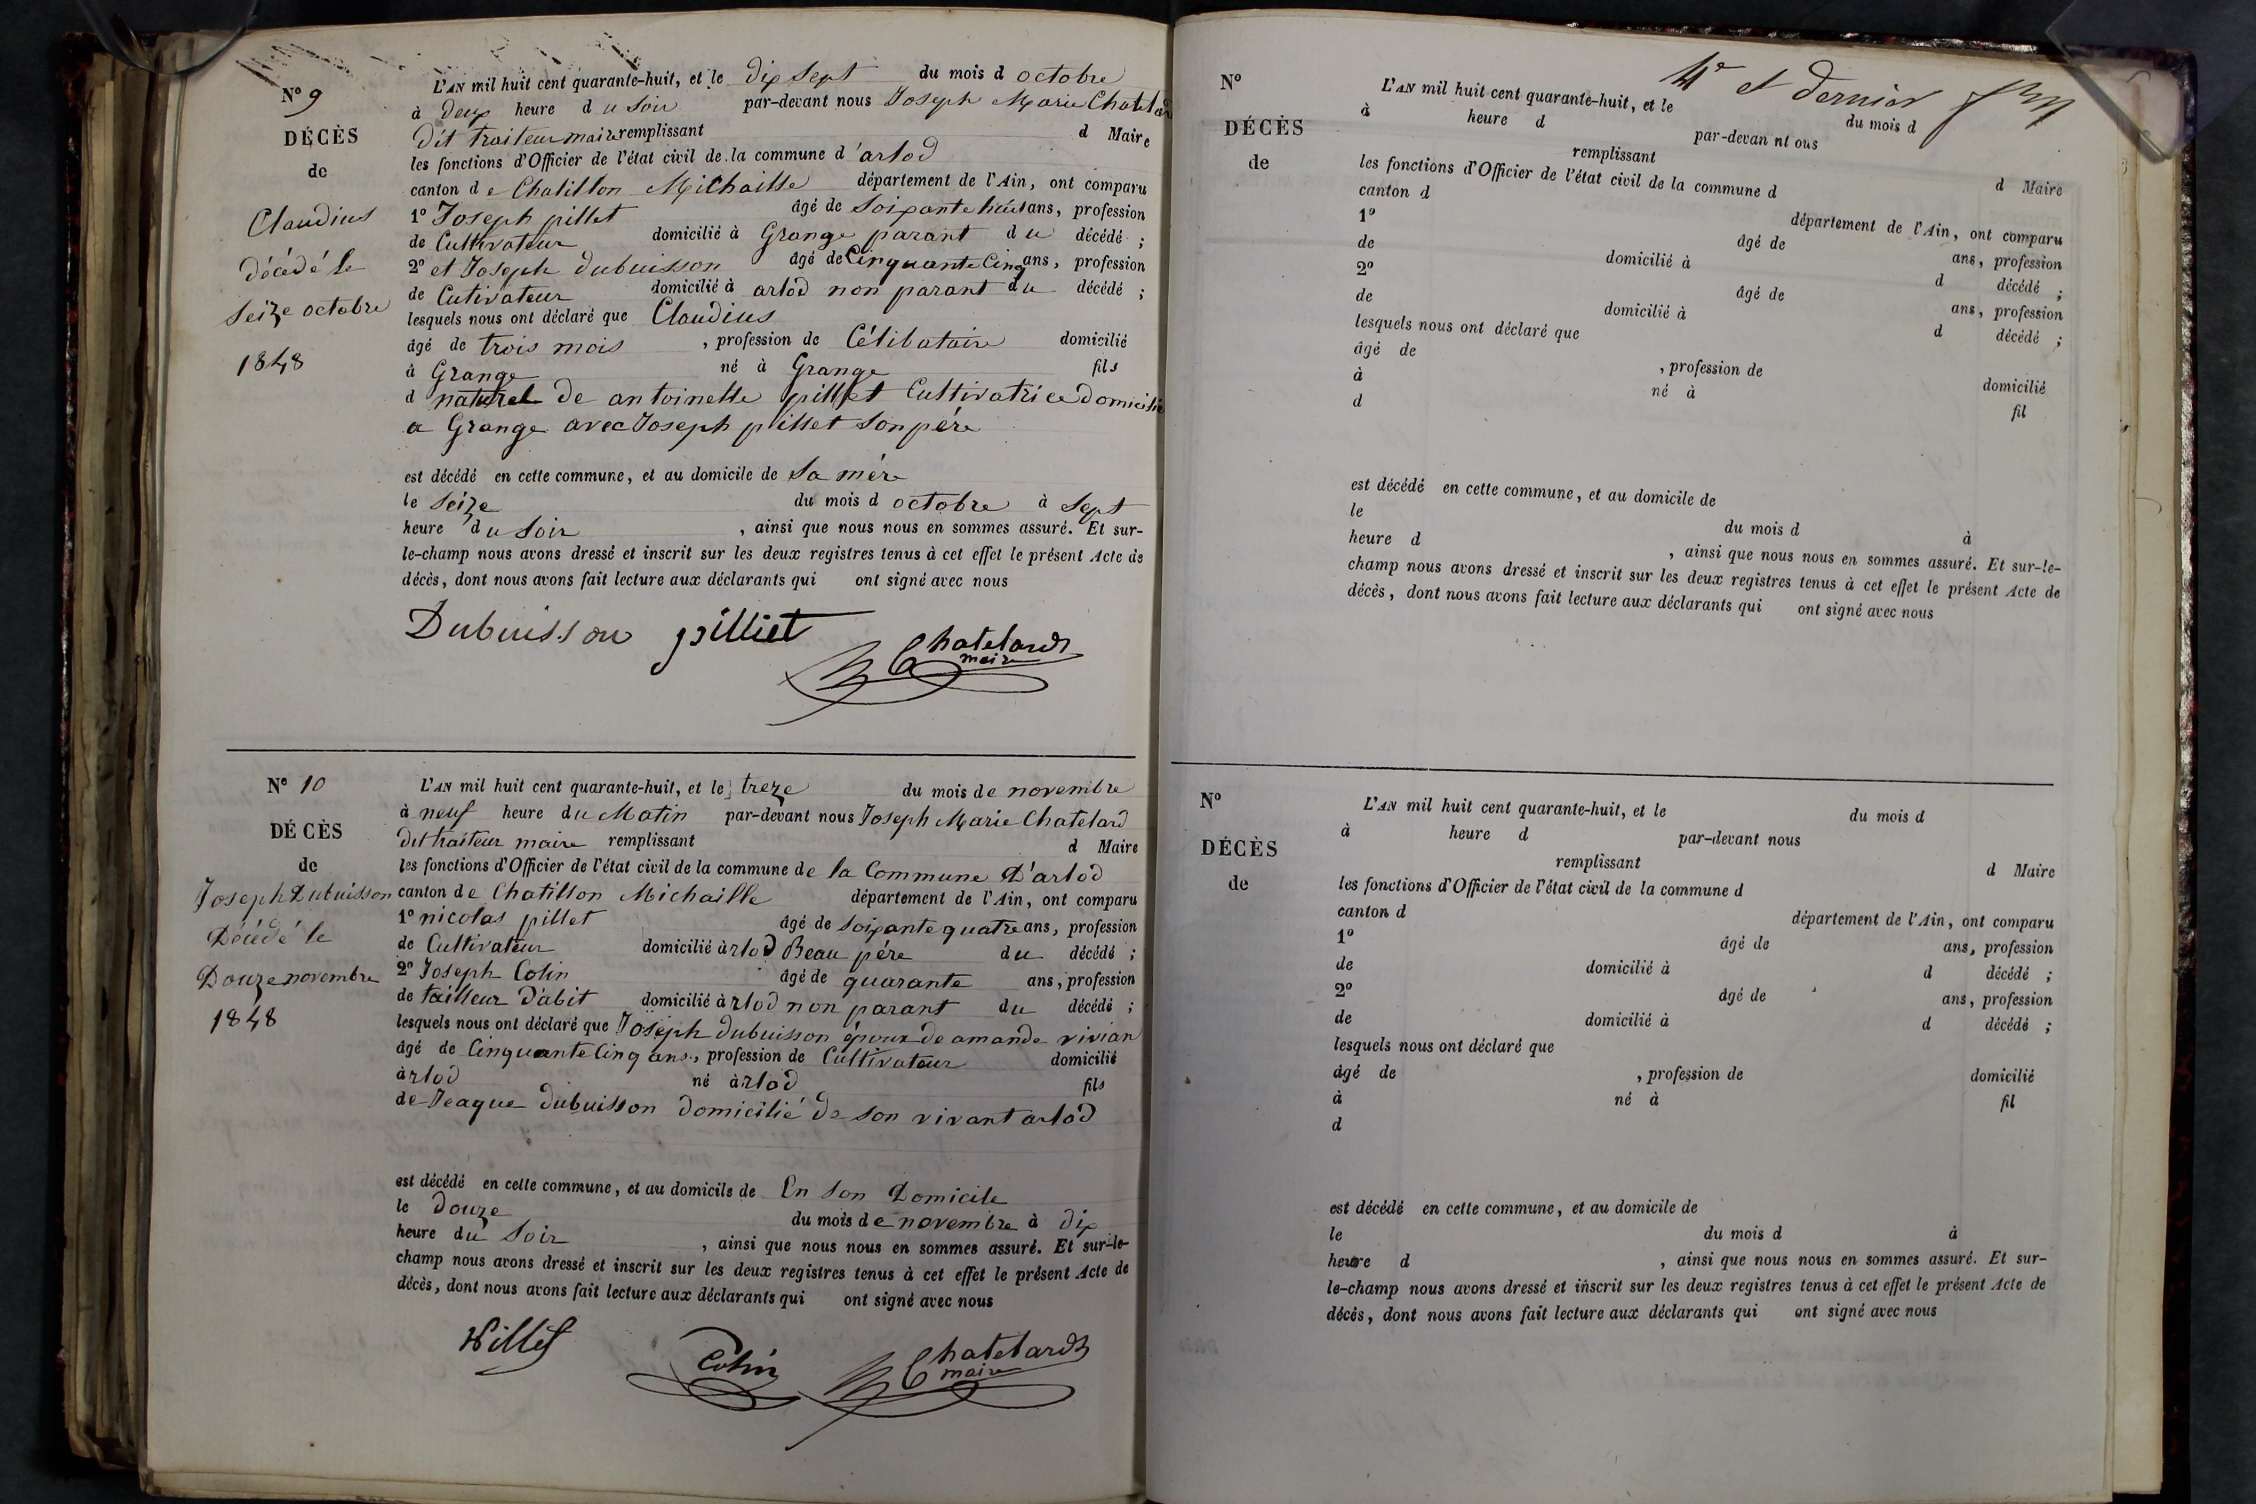 N° 9
DÉCÈS
de
Claudius
décédé le
seize octobre
1848
L'AN mil huit cent quarante-huit, et le dix sept du mois d octobre
à deux heure du soir par-devant nous Joseph Marie Chatelard
dit traiteur maire remplissant d Maire
les fonctions d'Officier de l'état civil de la commune d'arlod
canton de Chatillon Michaille département de l'Ain, ont comparu
1° Joseph pillet âgé de soixante huit ans, profession
de Cultivateur domicilié à Grange parant du décédé ;
2° et Joseph dubuisson âgé de Cinquante Cinq ans, profession
de Cutivateur domicilié à arlod non parant du décédé ;
lesquels nous ont déclaré que Claudius
âgé de trois mois , profession de Célibataire domicilié
à Grange né à Grange fils
d naturel de antoinette pillet Cultivatrice domicilié
a Grange avec Joseph pillet son père
est décédé en cette commune, et au domicile de sa mère
le seize du mois d octobre à sept
heure du soir , ainsi que nous nous en sommes assuré. Et sur-
le-champ nous avons dressé et inscrit sur les deux registres tenus à cet effet le présent Acte de
décès, dont nous avons fait lecture aux déclarants qui ont signé avec nous
Dubuisson pilliet
Chatelard
maire
N° 10
DÉCÈS
de
Joseph Dubuisson
Décédé le
Douze novembre
1848
L'AN mil huit cent quarante-huit, et le treze du mois de novembre
à neuf heure du Matin par-devant nous Joseph Marie Chatelard
dit traiteur maire remplissant d Maire
les fonctions d'Officier de l'état civil de la commune de la Commune D'arlod
canton de Chatillon Michaille département de l'Ain, ont comparu
1° nicolas pillet âgé de soixante quatre ans, profession
de Cultivateur domicilié àrlod Beau père du décédé ;
2° Joseph Colin âgé de quarante ans, profession
de tailleur D'abit domicilié àrlod non parant du décédé ;
lesquels nous ont déclaré que Joseph dubuisson époux de amande vivian
âgé de Cinquante Cinq ans, profession de Cultivateur domicilié
àrlod né àrlod fils
de Jeaque dubuisson domicilié de son vivant arlod
est décédé en cette commune, et au domicile de En son Domicile
le douze du mois de novembre à dix
heure du soir , ainsi que nous nous en sommes assuré. Et sur-le-
champ nous avons dressé et inscrit sur les deux registres tenus à cet effet le présent Acte de
décès, dont nous avons fait lecture aux déclarants qui ont signé avec nous
Colin
Chatelard
maire
4e et dernier
N°
DÉCÈS
de
L'AN mil huit cent quarante-huit, et le du mois d
à heure d par-devan nt ous
remplissant d Maire
les fonctions d'Officier de l'état civil de la commune d
canton d département de l'Ain, ont comparu
1° âgé de ans, profession
de domicilié à d décédé ;
2° âgé de ans, profession
de domicilié à d décédé ;
lesquels nous ont déclaré que
âgé de , profession de domicilié
à né à fil
d
est décédé en cette commune, et au domicile de
le du mois d à
heure d , ainsi que nous nous en sommes assuré. Et sur-le-
champ nous avons dressé et inscrit sur les deux registres tenus à cet effet le présent Acte de
décès, dont nous avons fait lecture aux déclarants qui ont signé avec nous
N°
DÉCÈS
de
L'AN mil huit cent quarante-huit, et le du mois d
à heure d par-devant nous
remplissant d Maire
les fonctions d'Officier de l'état civil de la commune d
canton d département de l'Ain, ont comparu
1° âgé de ans, profession
de domicilié à d décédé ;
2° âgé de ans, profession
de domicilié à d décédé ;
lesquels nous ont déclaré que
âgé de , profession de domicilié
à né à fil
d
est décédé en cette commune, et au domicile de
le du mois d à
heure d , ainsi que nous nous en sommes assuré. Et sur-
le-champ nous avons dressé et inscrit sur les deux registres tenus à cet effet le présent Acte de
décès, dont nous avons fait lecture aux déclarants qui ont signé avec nous